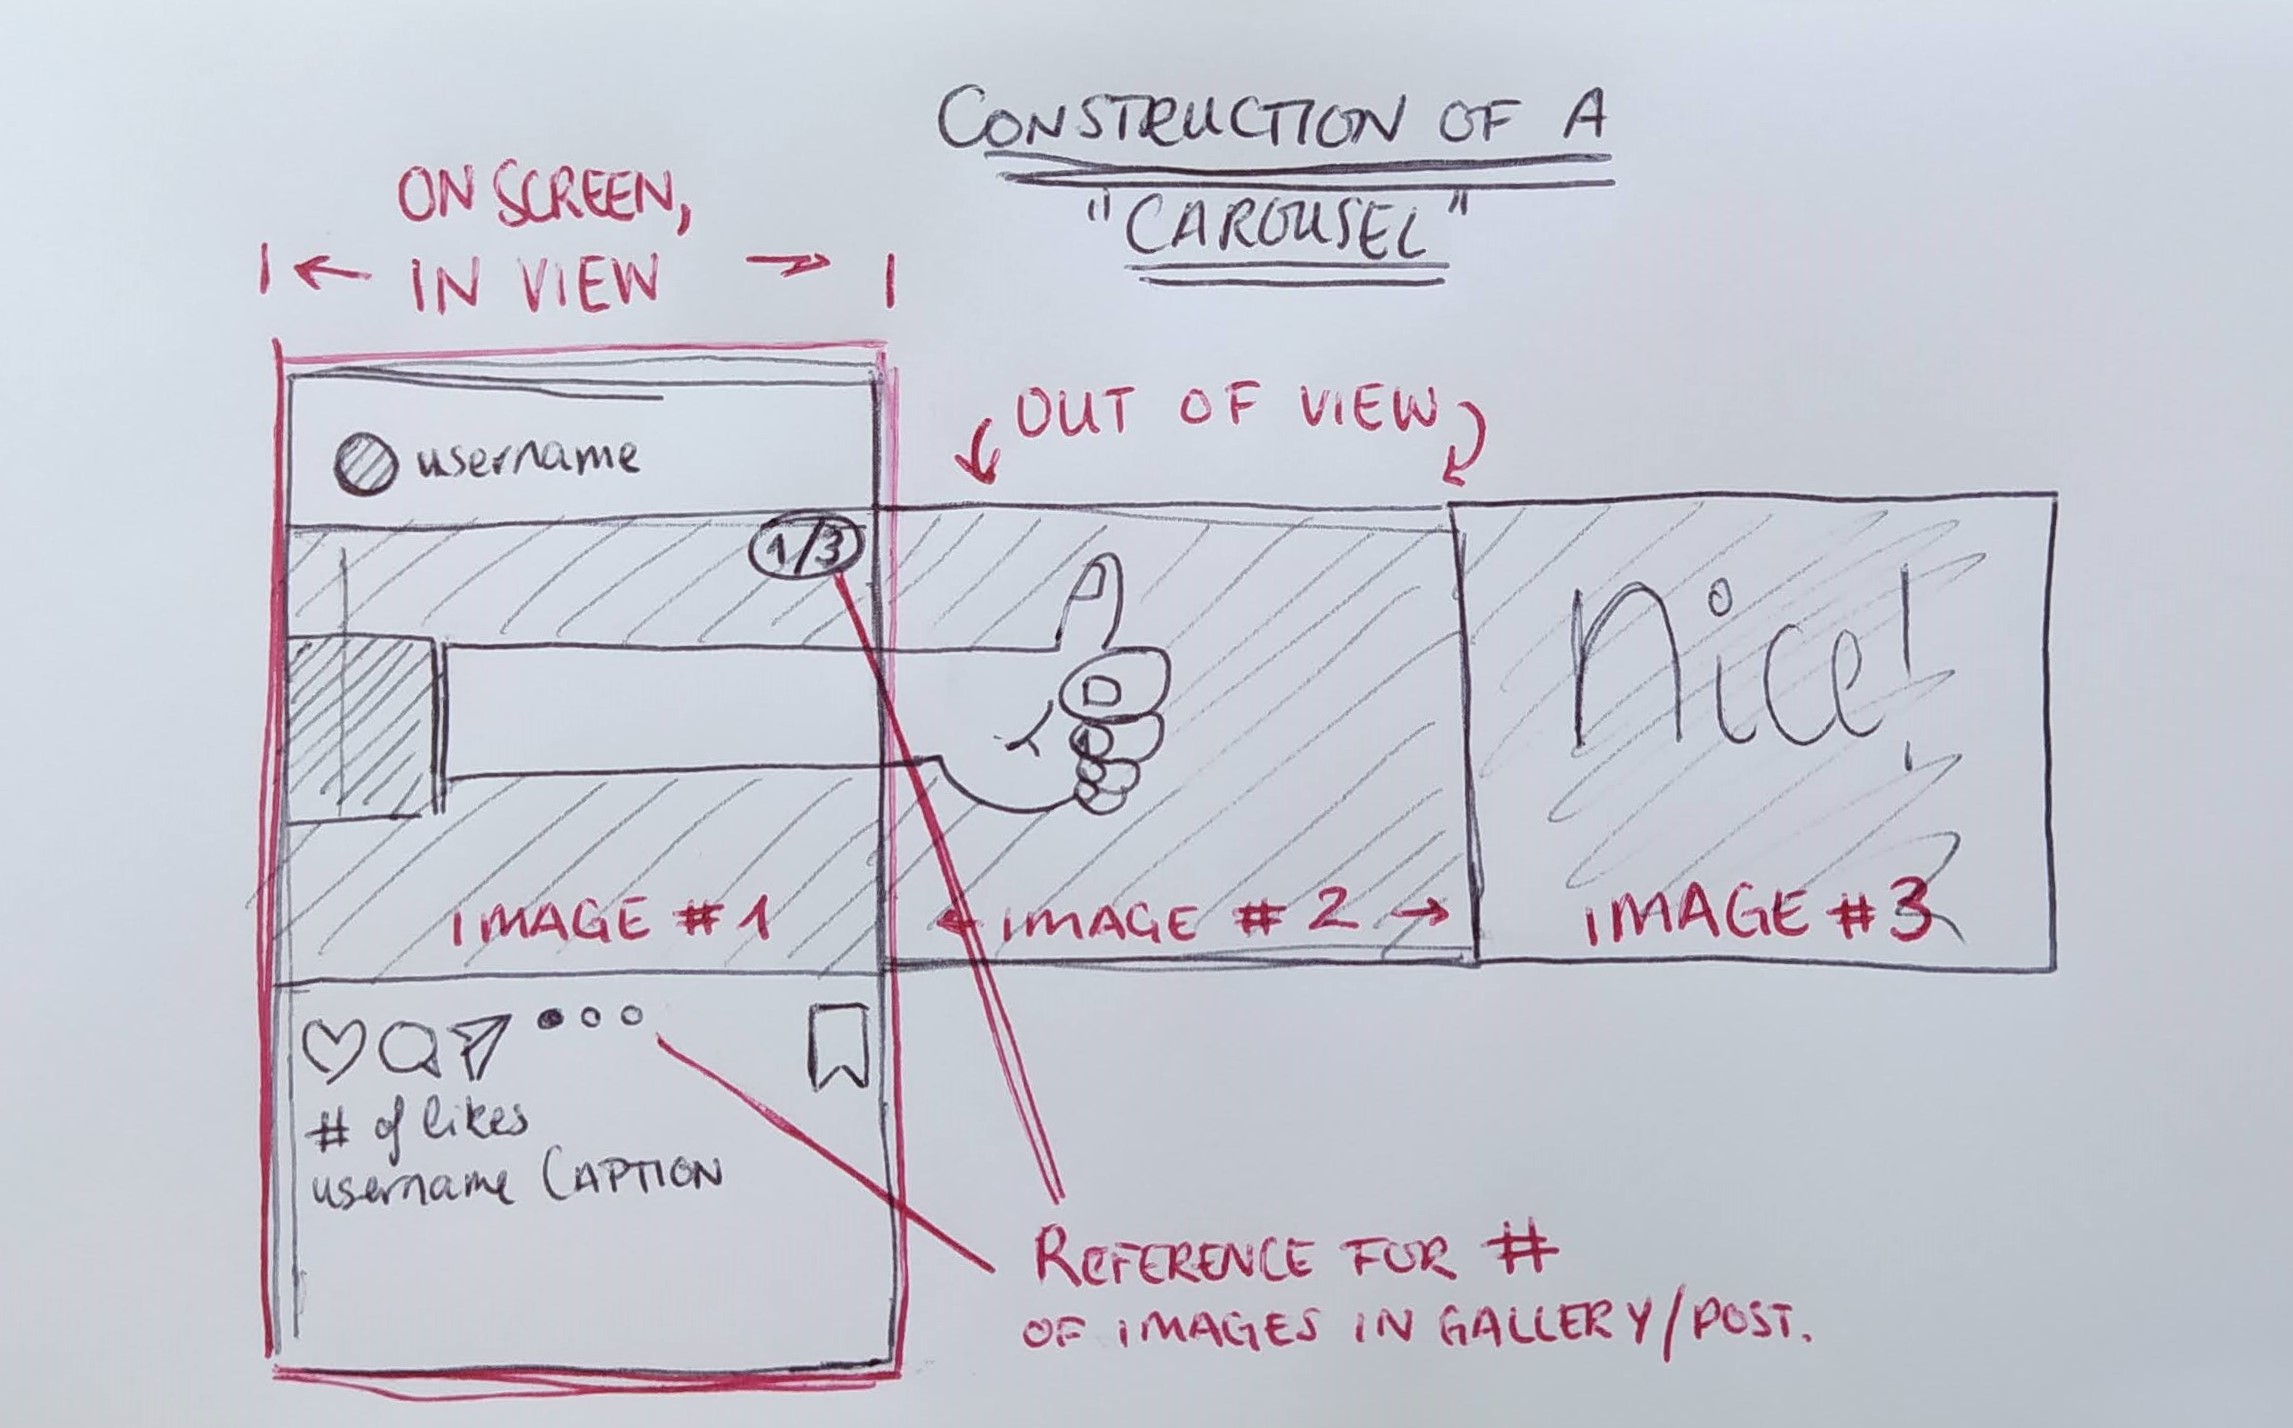 CONSTRUCTION OF A
"CAROUSEL"
ON SCREEN,
IN VIEW
OUT OF VIEW
username
1/3
Nice!
IMAGE #1
IMAGE #2
IMAGE #3
# of likes
username CAPTION
REFERENCE FOR #
OF IMAGES IN GALLERY/POST.